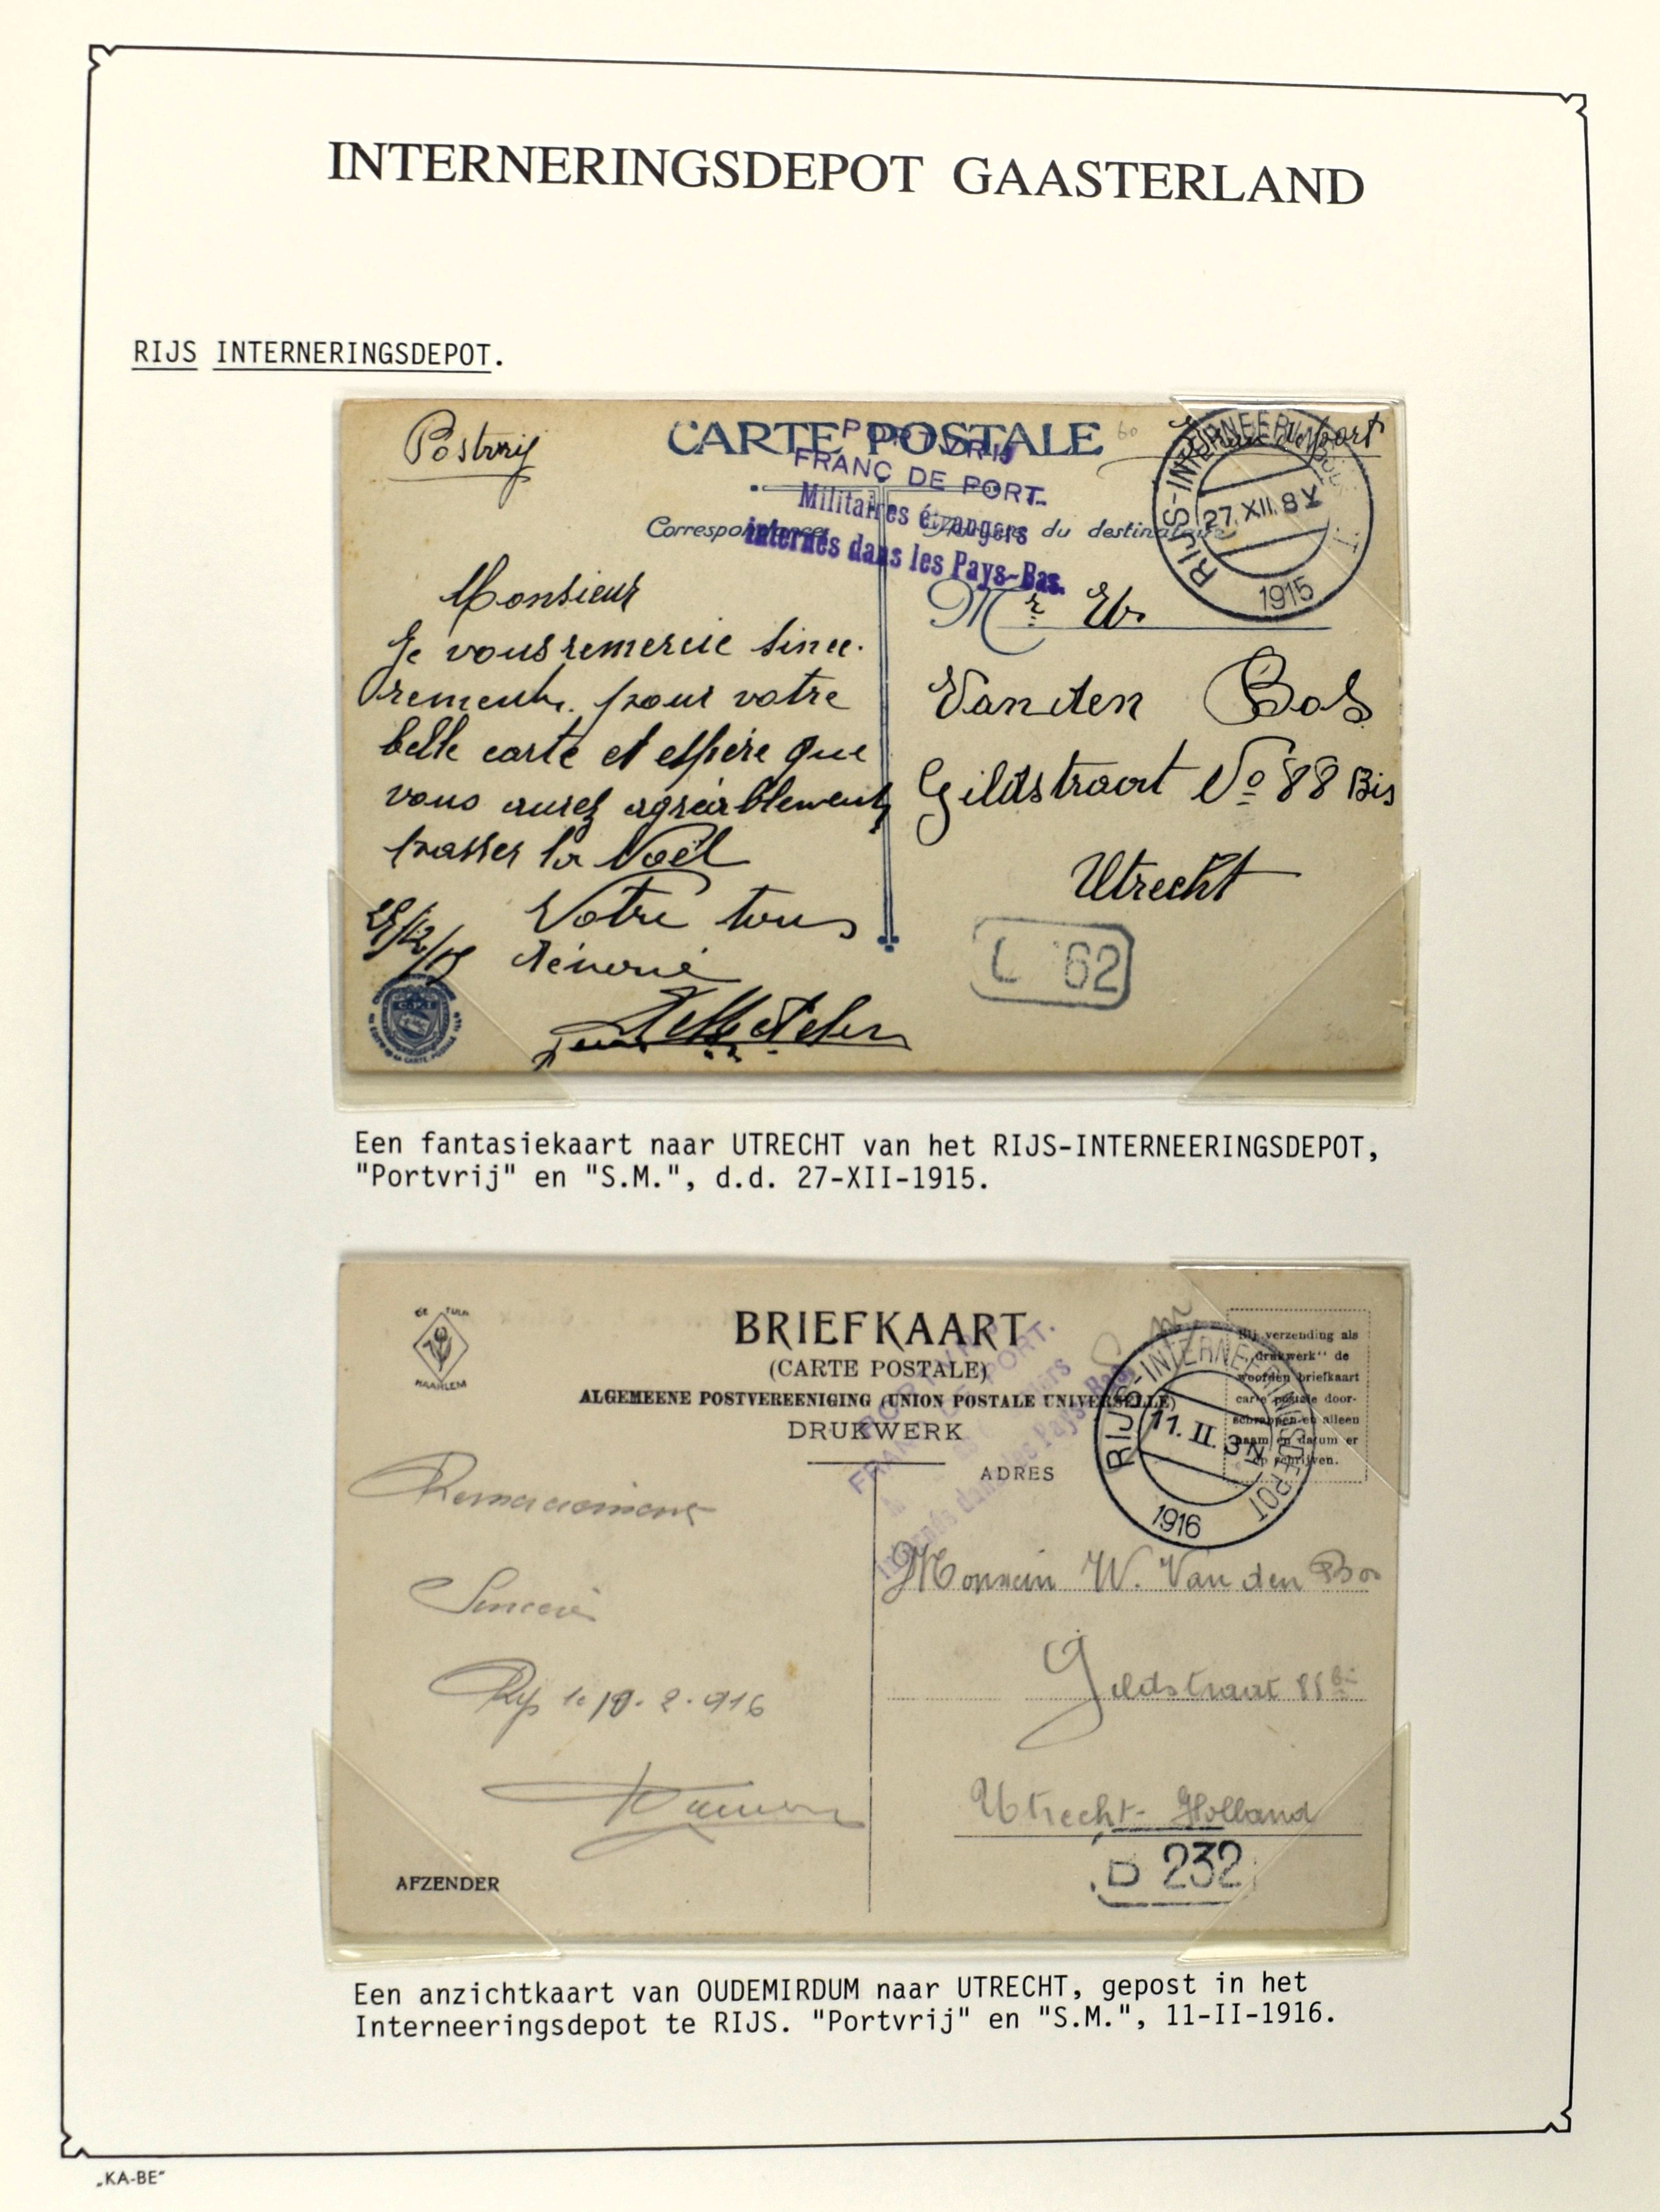 INTERNERINGSDEPOT GAASTERLAND
RIJS INTERNERINGSDEPOT.
CARTE POSTALE
FRANC DE PORT.
Militaires étrangers
internés dans les Pays-Bas.
Correspondance
du destinataire
RIJS-INTERNEERINGSDEPOT
27.XII.8V
1915
Monsieur
Je vous remercie since-
rement pour votre
belle carte et espère que
vous aurez agréablement
passer la Noël
Votre tous
dénoué
Mr W.
Van den Bos
Gildstraat No 88 Bis
Utrecht
L 62
Een fantasiekaart naar UTRECHT van het RIJS-INTERNEERINGSDEPOT,
"Portvrij" en "S.M.", d.d. 27-XII-1915.
HAARLEM
BRIEFKAART
(CARTE POSTALE)
ALGEMEENE POSTVEREENIGING (UNION POSTALE UNIVERSELLE)
DRUKWERK
ADRES
FRANC DE PORT.
internés dans les Pays-Bas.
Bij verzending als
„drukwerk“ de
woorden briefkaart
carte postale door-
schrappen en alleen
naam en datum er
op schrijven.
RIJS-INTERNEERINGSDEPOT
11.II.3N
1916
Sincère
Rijs le 10.2.916
Monsieur W. Van den Bos
Gildstraat 88 bis
Utrecht-Holland
B 232
AFZENDER
Een anzichtkaart van OUDEMIRDUM naar UTRECHT, gepost in het
Interneeringsdepot te RIJS. "Portvrij" en "S.M.", 11-II-1916.
„KA-BE“